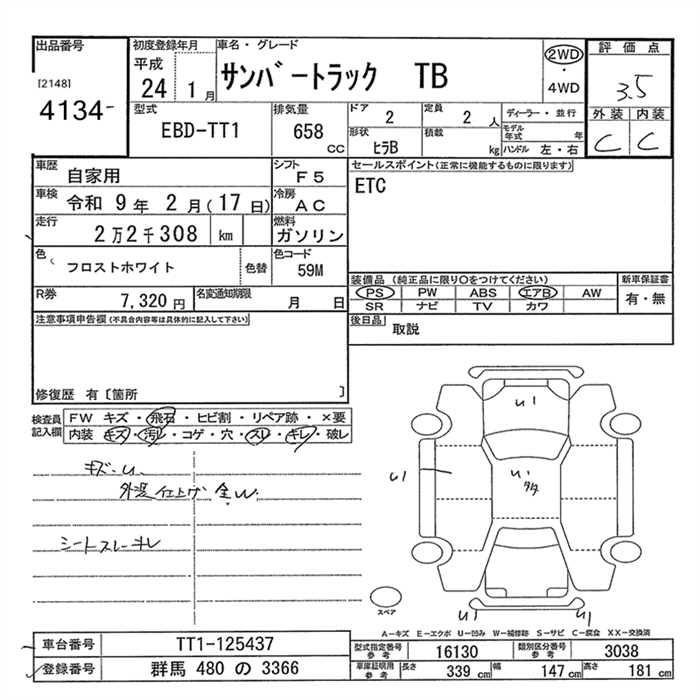 出品番号
[2148]
4134-
初度登録年月
平成
24 1 月
車名・グレード
サンバートラック TB
2WD
・
4WD
評価点
3.5
外装 内装
C C
型式
EBD-TT1
排気量
658
CC
ドア
2
定員
2 人
ディーラー・並行
形状
ヒラB
積載
kg
モデル年式
年
ハンドル 左・右
車歴
自家用
シフト
F5
車検
令和 9 年 2 月(17 日)
冷房
AC
走行
2万2千308 km
燃料
ガソリン
色
フロストホワイト
色替
色コード
59M
R券
7,320 円
名変通知期限
月 日
セールスポイント(正常に機能するものに限ります)
ETC
装備品 (純正品に限り○をつけてください)
新車保証書
PS PW ABS エアB AW
有・無
SR ナビ TV カワ
後日品
取説
注意事項申告欄(不具合内容等は具体的に記入して下さい)
修復歴 有〔箇所 〕
検査員
記入欄
FW キズ・飛石・ヒビ割・リペア跡・×要
内装 キズ・汚レ・コゲ・穴・スレ・キレ・破レ
キズ・U
シートスレ・キレ
U1
U1
U1
U1
U1
スペア
A-キズ E-エクボ U-凹み W-補修跡 S-サビ C-腐食 XX-交換済
車台番号
TT1-125437
型式指定番号
参考
16130
類別区分番号
参考
3038
登録番号
群馬 480 の 3366
車庫証明用
参考
長さ
339 cm
幅
147 cm
高さ
181 cm